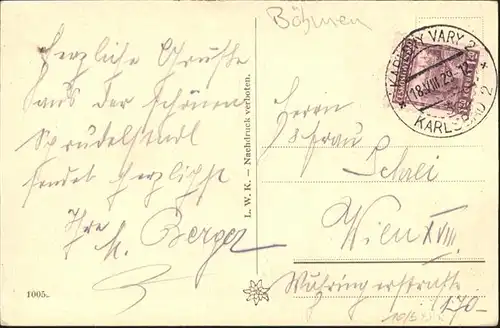 Böhmen
KARLOVY VARY 2
18.VIII.29
KARLSBAD 2
Herzliche Grüße
aus der schönen
Sprudelstadt
sendet herzlichst
Ihre
M. Berger
L. W. K. — Nachdruck verboten.
Herrn
& Frau
Wien XVIII.
Währingerstraße
170
1005.